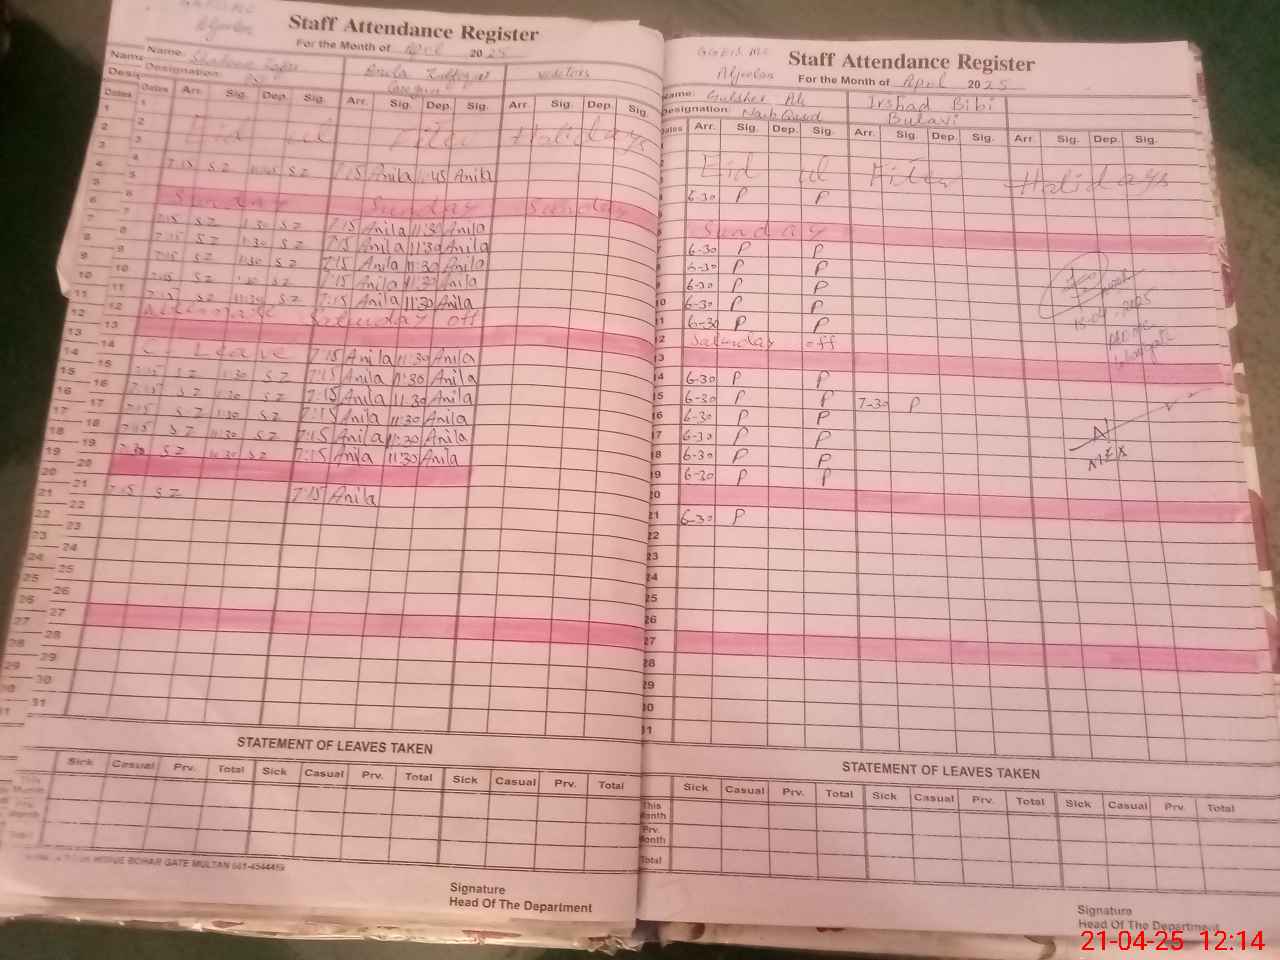 Staff Attendance Register
For the Month of April 2025
Name:
Designation
Anila
Caregiver
visitors
Dates Arr. Sig. Dep. Sig. Arr. Sig. Dep. Sig. Arr. Sig. Dep. Sig.
1
2 Eid ul Fiter Holidays
3
4 7:15 SZ 11:45 SZ 7:15 Anila 11:45 Anila
5
6 Sunday Sunday Sunday
7 7:15 SZ 11:30 SZ 7:15 Anila 11:30 Anila
8 7:15 SZ 11:30 SZ 7:15 Anila 11:30 Anila
9 7:15 SZ 11:30 SZ 7:15 Anila 11:30 Anila
10 7:15 SZ 11:30 SZ 7:15 Anila 11:30 Anila
11 7:15 SZ 11:30 SZ 7:15 Anila 11:30 Anila
12 Alternate Saturday off
13
14 C- Leave 7:15 Anila 11:30 Anila
15 7:15 SZ 11:30 SZ 7:15 Anila 11:30 Anila
16 7:15 SZ 11:30 SZ 7:15 Anila 11:30 Anila
17 7:15 SZ 11:30 SZ 7:15 Anila 11:30 Anila
18 7:15 SZ 11:30 SZ 7:15 Anila 11:30 Anila
19 7:30 SZ 11:30 SZ 7:15 Anila 11:30 Anila
20
21 7:15 SZ 7:15 Anila
22
23
24
25
26
27
28
29
30
31
STATEMENT OF LEAVES TAKEN
Sick Casual Prv. Total Sick Casual Prv. Total Sick Casual Prv. Total
This Month
Prv. Month
Total
BOHAR GATE MULTAN 061-4544459
Signature
Head Of The Department
Staff Attendance Register
For the Month of April 2025
Name: Gulsher Ali Irshad Bibi
Designation: Naib Qasid Bulavi
Dates Arr. Sig. Dep. Sig. Arr. Sig. Dep. Sig. Arr. Sig. Dep. Sig.
Eid ul Fiter Holidays
6-30 P P
Sunday
7 6-30 P P
8 6-30 P P
9 6-30 P P
10 6-30 P P
11 6-30 P P
12 Saturday off
13
14 6-30 P P
15 6-30 P P 7-30 P
16 6-30 P P
17 6-30 P P
18 6-30 P P
19 6-30 P P
20
21 6-30 P
22
23
24
25
26
27
28
29
30
31
15-04-2025
MEA
STATEMENT OF LEAVES TAKEN
Sick Casual Prv. Total Sick Casual Prv. Total Sick Casual Prv. Total
This Month
Prv. Month
Total
Signature
Head Of The Department
21-04-25 12:14